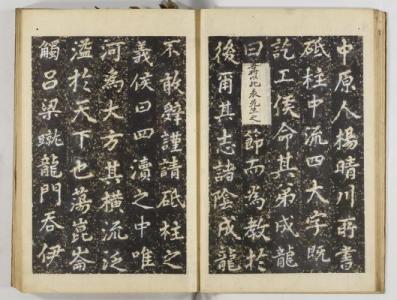 中原人楊晴川所書
砥柱中流四大字既
訖工侯命其弟成龍
曰
節而為教於
後爾其志諸陰成龍
不敢辤謹請砥柱之
義侯曰四瀆之中唯
河為大方其橫流泛
濫於天下也蕩崑崙
觸呂梁
龍門吞伊